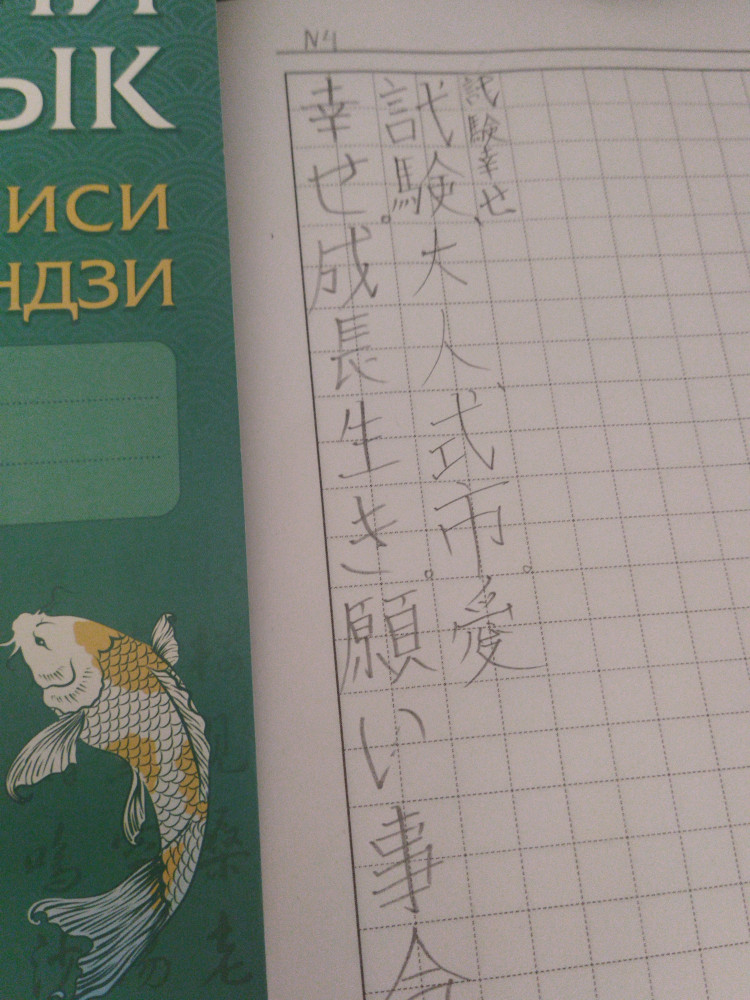 ЫК
ИСИ
НДЗИ
N4
試験幸せ
試験、大人、式市。愛
幸せ。成長生き。願い事